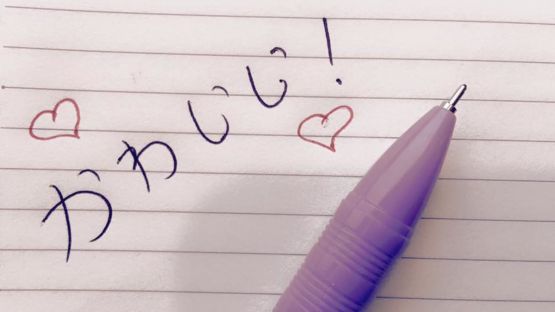 かわいい!